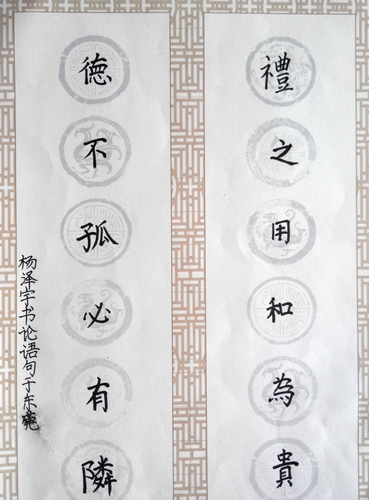 禮之用和為貴
德不孤必有隣
杨泽宇书论语句于东莞